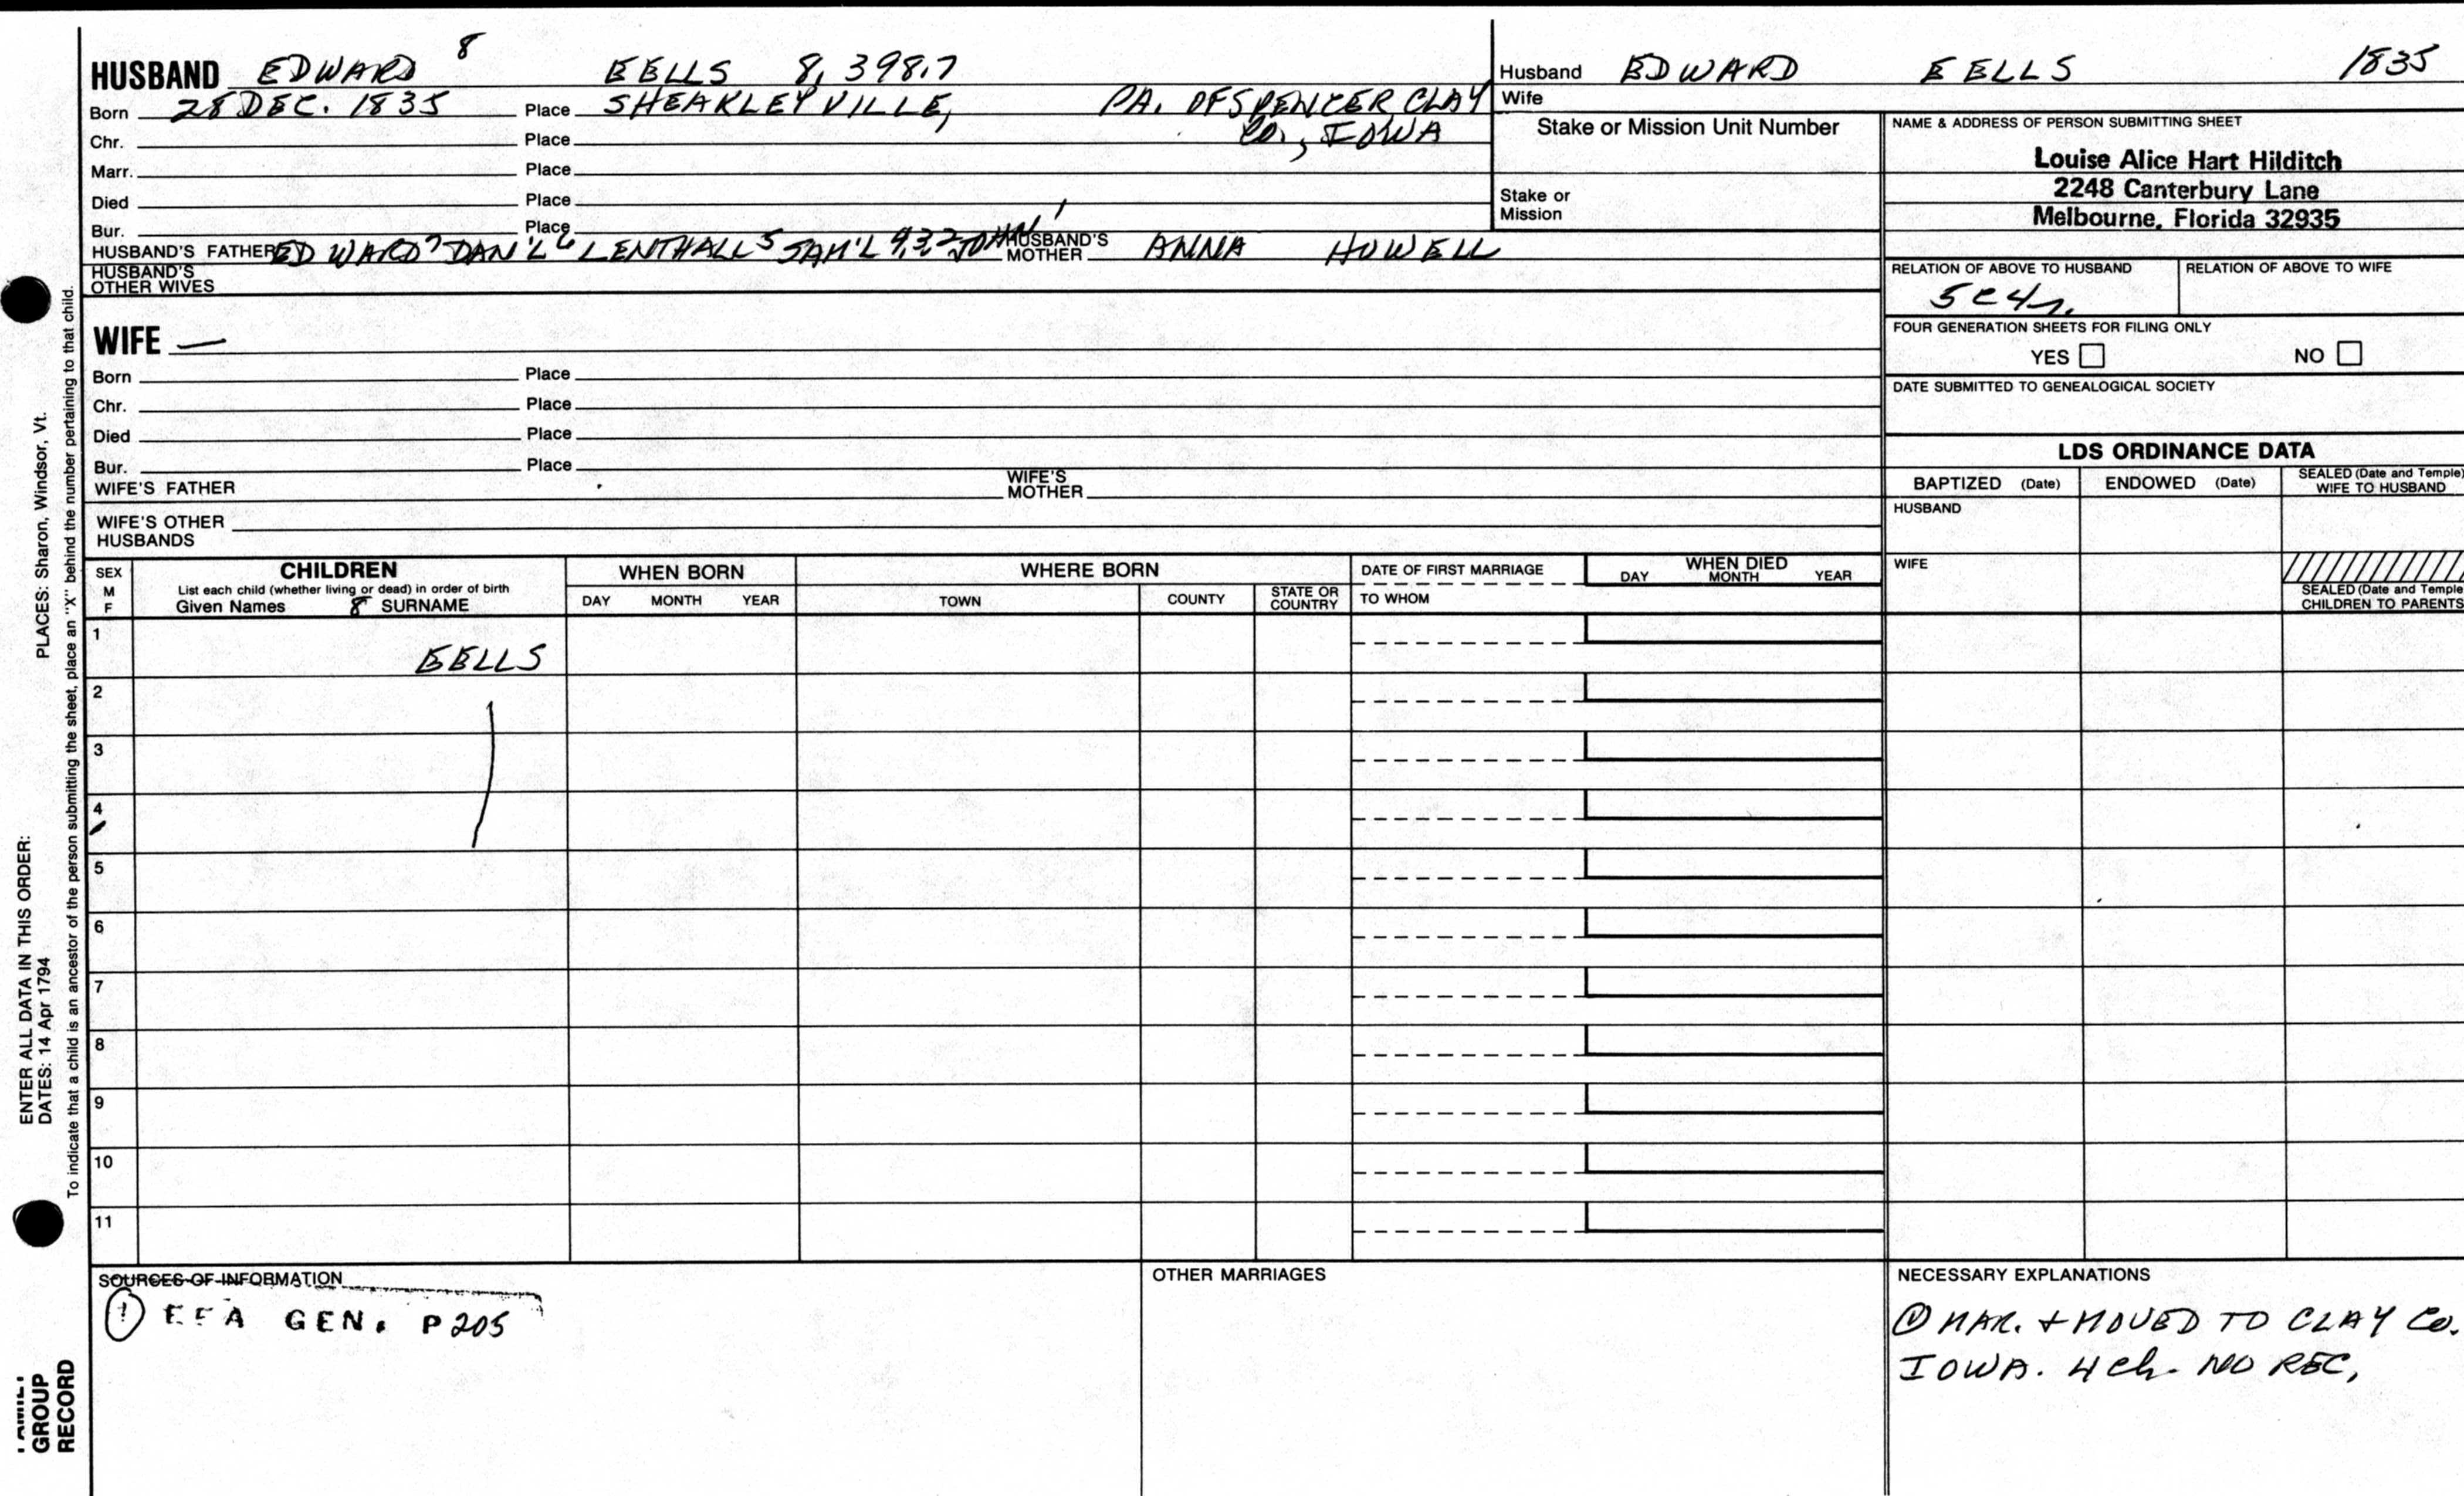 HUSBAND EDWARD 8 EELLS 8,398.7
Born 28 DEC. 1835 Place SHEAKLEYVILLE, PA. OF SPENCER CLAY
Chr. Place CO., IOWA
Marr. Place
Died Place
Bur. Place
HUSBAND'S FATHER EDWARD 7 DAN'L 6 LENTHALL 5 SAM'L 4,3,2 JOHN 1 HUSBAND'S MOTHER ANNA HOWELL
HUSBAND'S OTHER WIVES
Husband EDWARD EELLS 1835
Wife
Stake or Mission Unit Number
Stake or
Mission
NAME & ADDRESS OF PERSON SUBMITTING SHEET
Louise Alice Hart Hilditch
2248 Canterbury Lane
Melbourne, Florida 32935
RELATION OF ABOVE TO HUSBAND RELATION OF ABOVE TO WIFE
5C4r.
FOUR GENERATION SHEETS FOR FILING ONLY
YES NO
DATE SUBMITTED TO GENEALOGICAL SOCIETY
WIFE —
Born Place
Chr. Place
Died Place
Bur. Place
WIFE'S FATHER WIFE'S MOTHER
WIFE'S OTHER
HUSBANDS
LDS ORDINANCE DATA
BAPTIZED (Date) ENDOWED (Date) SEALED (Date and Temple) WIFE TO HUSBAND
HUSBAND
WIFE
SEALED (Date and Temple
CHILDREN TO PARENTS
SEX
M
F
CHILDREN
List each child (whether living or dead) in order of birth
Given Names 8 SURNAME
WHEN BORN
DAY MONTH YEAR
WHERE BORN
TOWN COUNTY STATE OR COUNTRY
DATE OF FIRST MARRIAGE
TO WHOM
WHEN DIED
DAY MONTH YEAR
1 EELLS
2
3
4
5
6
7
8
9
10
11
SOURCES OF INFORMATION
1 EFA GEN. P205
OTHER MARRIAGES
NECESSARY EXPLANATIONS
① MAR. + MOVED TO CLAY CO.
IOWA. 4 ch. NO REC.
ENTER ALL DATA IN THIS ORDER:
DATES: 14 Apr 1794 PLACES: Sharon, Windsor, Vt.
To indicate that a child is an ancestor of the person submitting the sheet, place an "X" behind the number pertaining to that child.
GROUP
RECORD